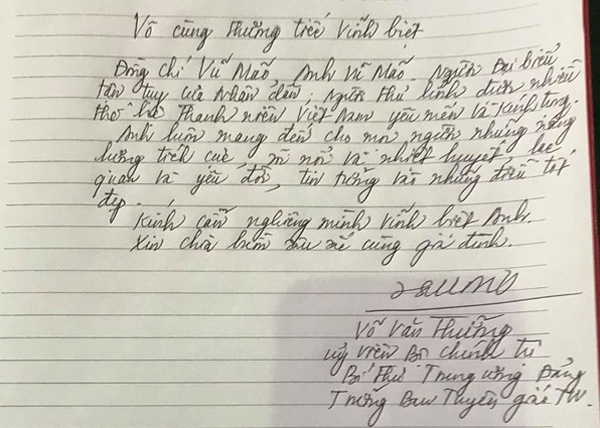 Vô cùng thương tiếc vĩnh biệt
Đồng chí Vũ Mão, Anh Vũ Mão. Người Đại biểu
tận tụy của Nhân dân; Người thủ lĩnh được nhiều
thế hệ Thanh niên Việt Nam yêu mến và Kính trọng.
Anh luôn mang đến cho mọi người những năng
lượng tích cực, sôi nổi và nhiệt huyết, lạc
quan và yêu đời, tin tưởng vào những điều tốt
đẹp.
Kính cẩn nghiêng mình vĩnh biệt Anh.
Xin chia buồn sâu sắc cùng gia đình.
Võ Văn Thưởng
Uỷ viên Bộ chính trị
Bí thư Trung ương Đảng
Trưởng Ban Tuyên giáo TW.